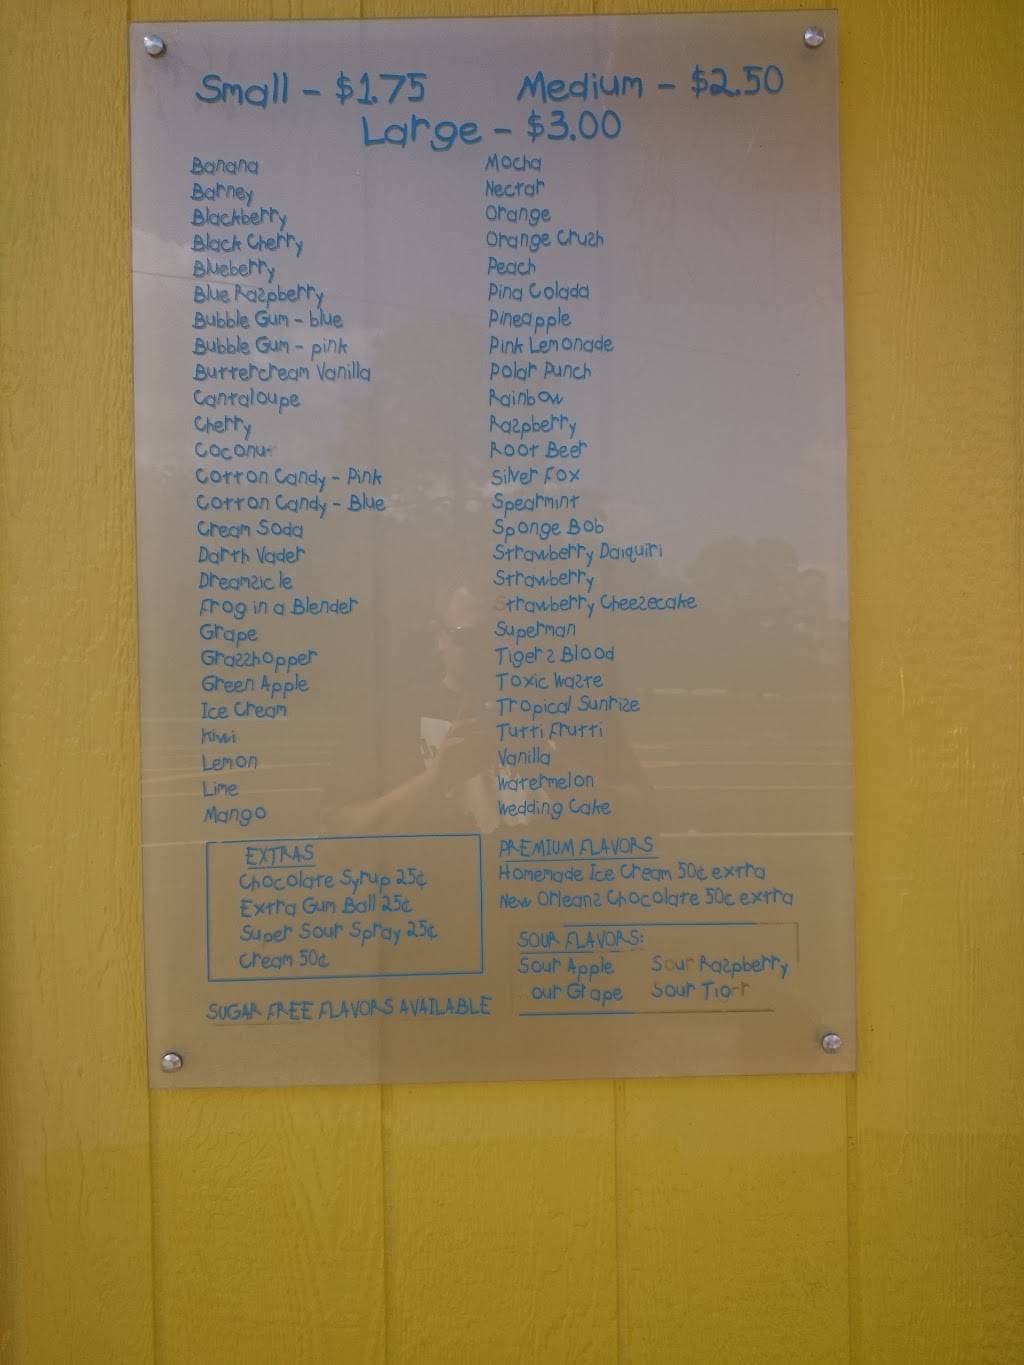 Small - $1.75 Medium - $2.50
Large - $3.00
Banana
Barney
Blackberry
Black Cherry
Blueberry
Blue Raspberry
Bubble Gum - blue
Bubble Gum - pink
Buttercream Vanilla
Cantaloupe
Cherry
Coconut
Cotton Candy - Pink
Cotton Candy - Blue
Cream Soda
Darth Vader
Dreamsicle
Frog in a Blender
Grape
Grasshopper
Green Apple
Ice Cream
Kiwi
Lemon
Lime
Mango
Mocha
Nectar
Orange
Orange Crush
Peach
Pina Colada
Pineapple
Pink Lemonade
Polar Punch
Rainbow
Raspberry
Root Beer
Silver Fox
Spearmint
Sponge Bob
Strawberry Daiquiri
Strawberry
Strawberry Cheesecake
Superman
Tigers Blood
Toxic Waste
Tropical Sunrise
Tutti Frutti
Vanilla
Watermelon
Wedding Cake
EXTRAS
Chocolate Syrup 25¢
Extra Gum Ball 25¢
Super Sour Spray 25¢
Cream 50¢
SUGAR FREE FLAVORS AVAILABLE
PREMIUM FLAVORS
Homemade Ice Cream 50¢ extra
New Orleans Chocolate 50¢ extra
SOUR FLAVORS:
Sour Apple Sour Raspberry
our Grape Sour Tiger